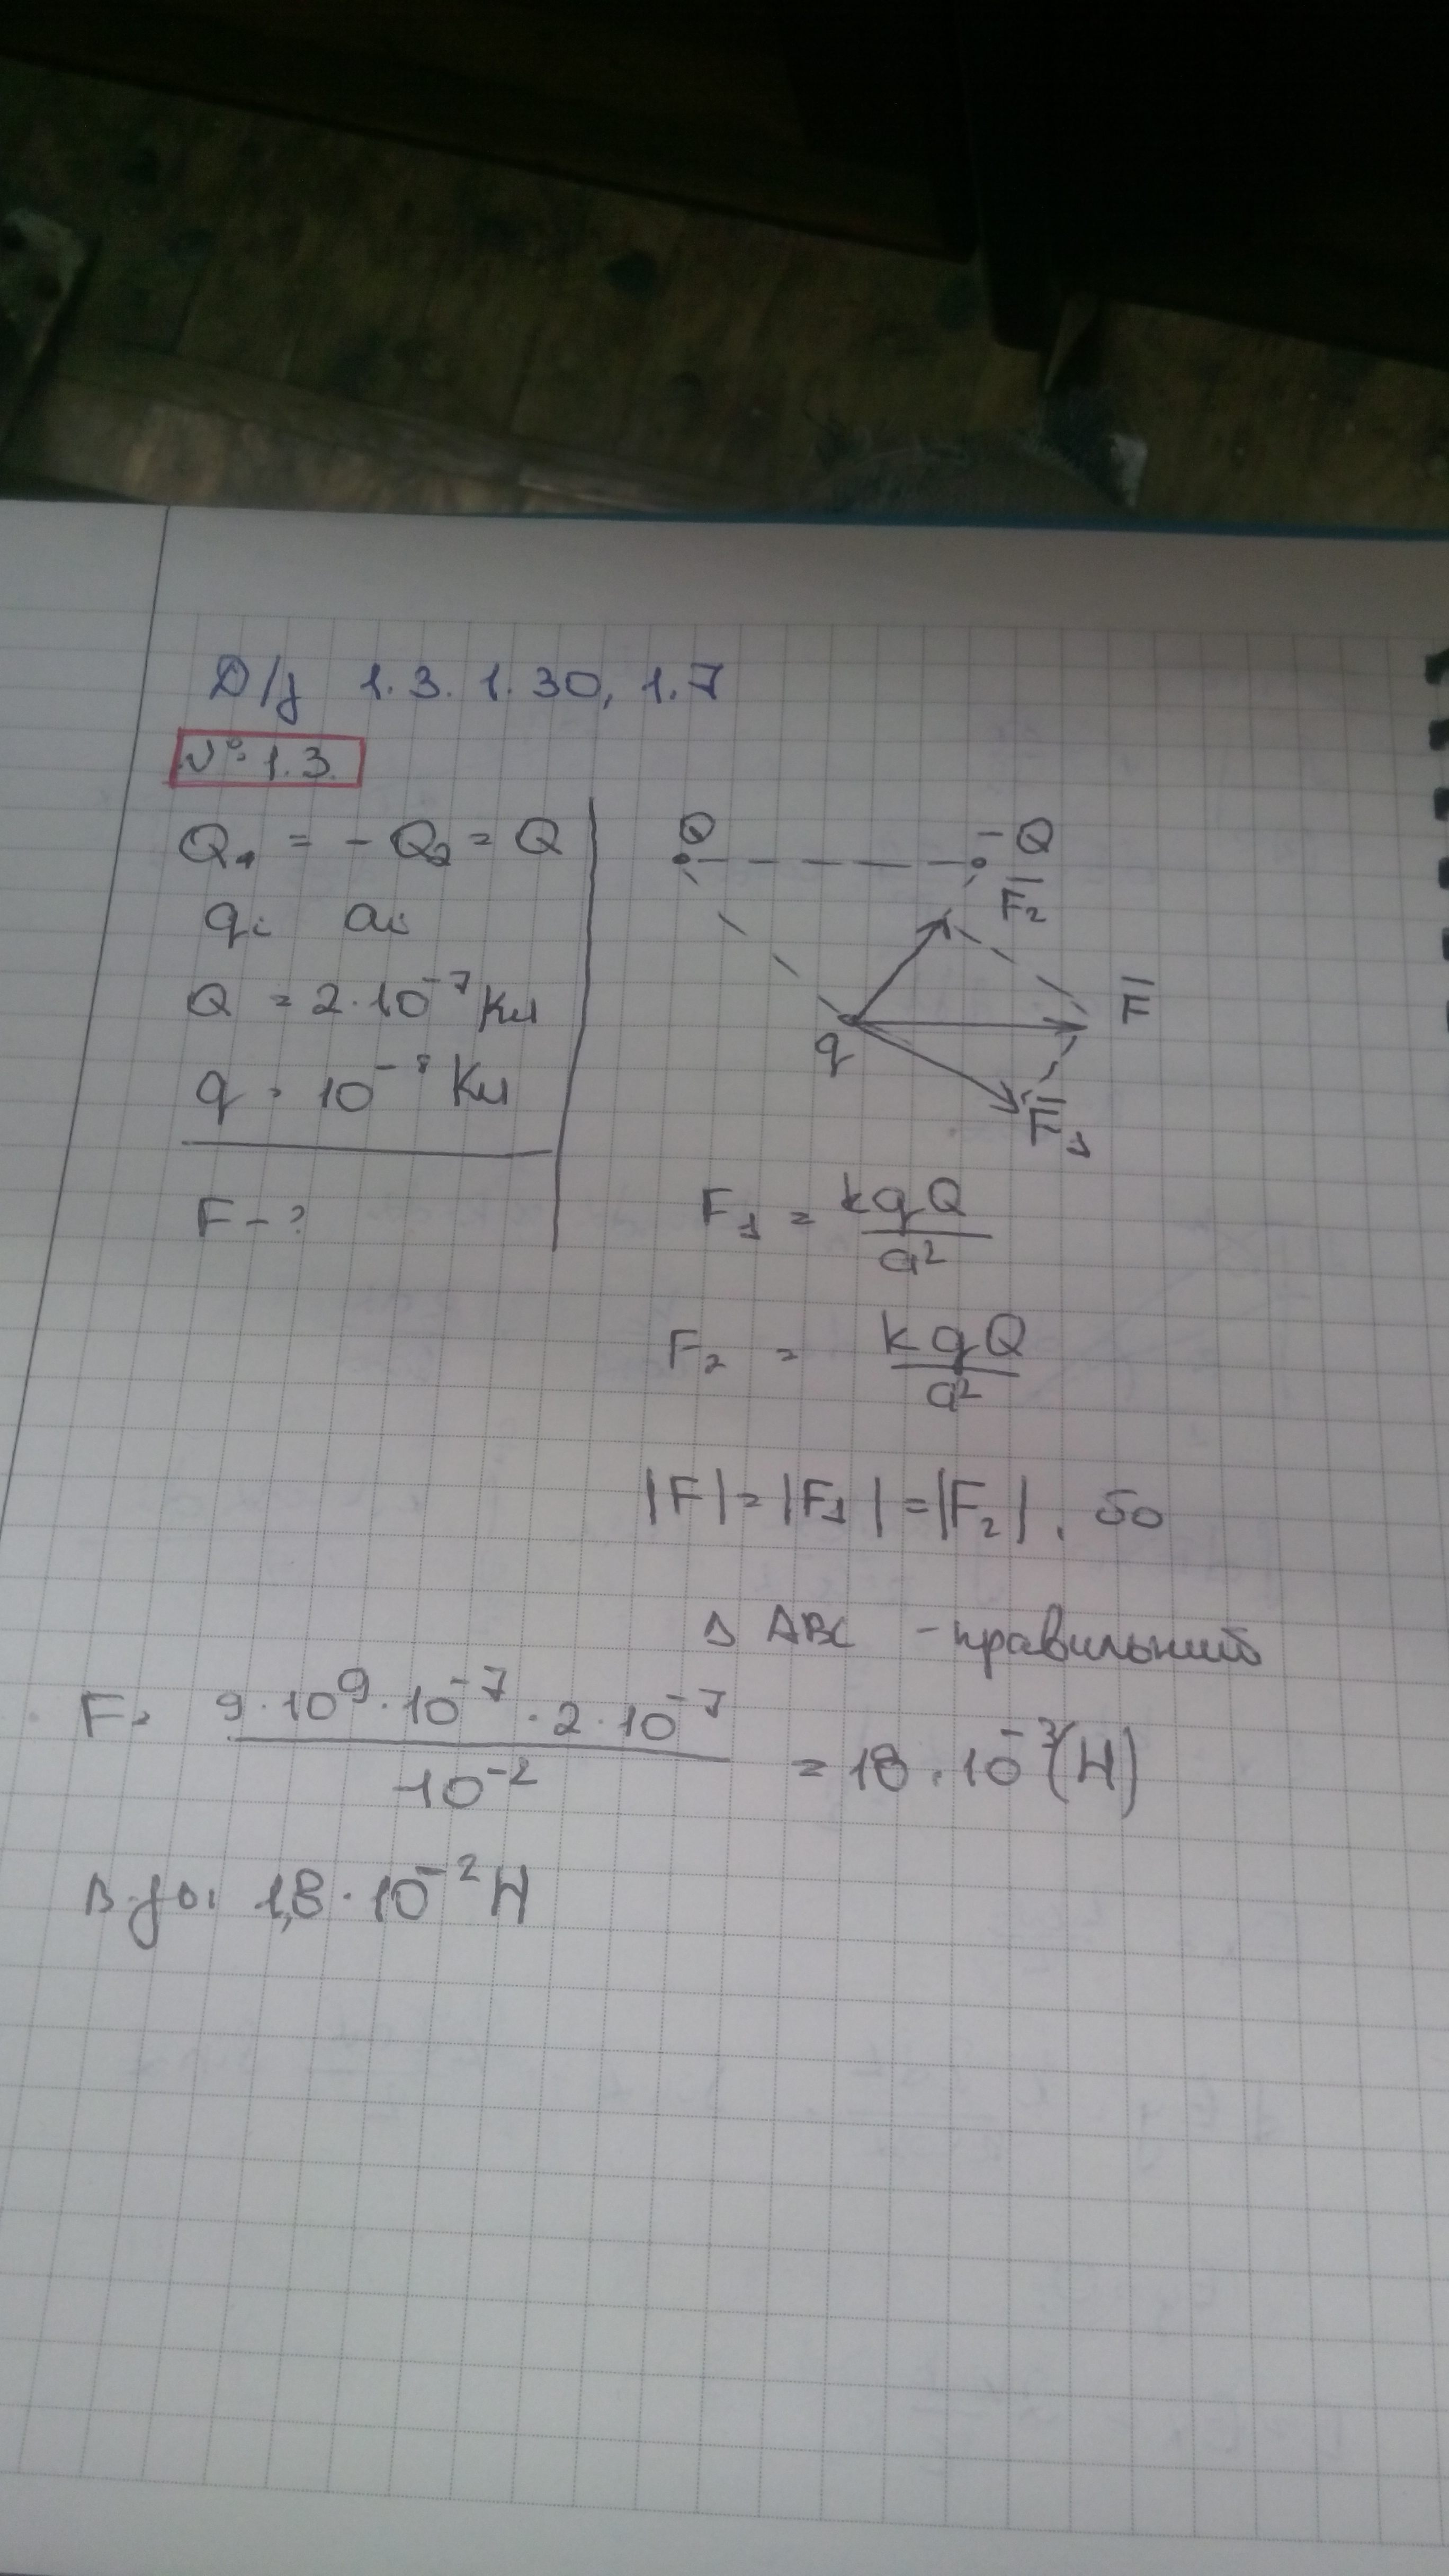 Д/з 1.3. 1.30, 1.7
№ 1.3.
Q₁ = -Q₂ = Q
q; a;
Q = 2·10⁻⁷ Кл
q = 10⁻⁷ Кл
F - ?
Q
-Q
F̅₂
F̅
q
F̅₁
F₁ = kqQ/a²
F₂ = kqQ/a²
|F| = |F₁| = |F₂|, бо
Δ ABC - правильний
F = 9·10⁹·10⁻⁷·2·10⁻⁷/10⁻² = 18·10⁻³(Н)
В-дь: 1,8·10⁻² Н